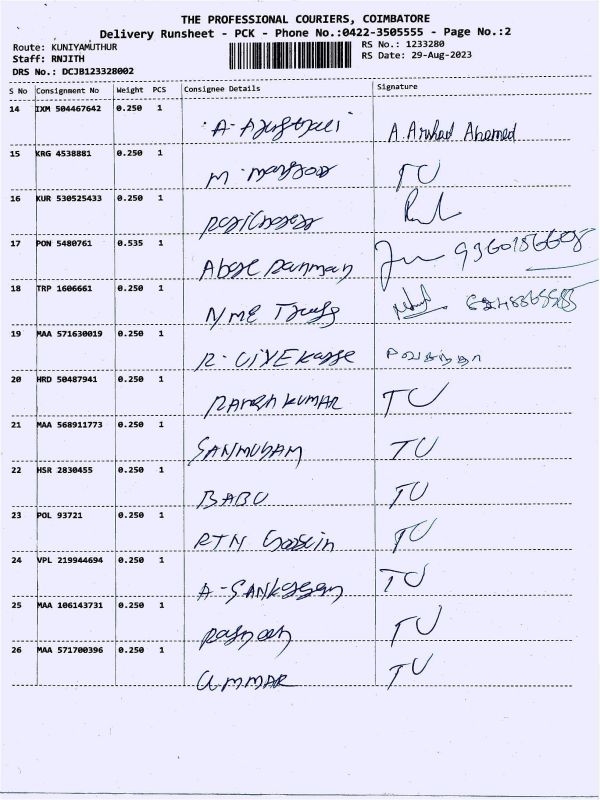 THE PROFESSIONAL COURIERS, COIMBATORE
Delivery Runsheet - PCK - Phone No.:0422-3505555 - Page No.:2
Route: KUNIYAMUTHUR
RS No.: 1233280
Staff: RNJITH
RS Date: 29-Aug-2023
DRS No.: DCJB123328002
S No Consignment No Weight PCS Consignee Details Signature
14 IXM 504467642 0.250 1 A. Arshad Ahamed
15 KRG 4538881 0.250 1 TU
16 KUR 530525433 0.250 1
17 PON 5480761 0.535 1
18 TRP 1606661 0.250 1 NME
19 MAA 571630019 0.250 1 R.
20 HRD 50487941 0.250 1 KUMAR TU
21 MAA 568911773 0.250 1 SANMUGAM TU
22 HSR 2830455 0.250 1 BABU TU
23 POL 93721 0.250 1 RTN TU
24 VPL 219944694 0.250 1 TU
25 MAA 106143731 0.250 1 TU
26 MAA 571700396 0.250 1 UMMAR TU